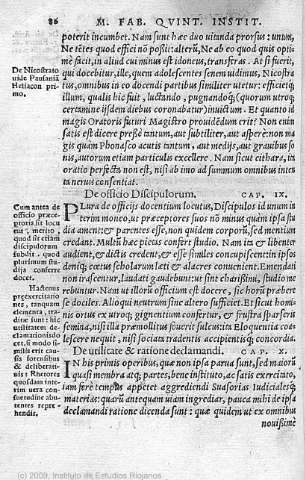 86 M. FAB. QVINT. INSTIT.
poterit incumbet. Nam sunt hæc duo vitanda prorsus: unum,
Ne tētes quod effici nō possit: alterũ, Ne ab eo quod quis opti-
mè facit, in aliud cui minus est idoneus, transferas. At si fuerit,
qui docebitur, ille, quem adolescentes senem uidimus, Nicostra-
tus, omnibus in eo docendi partibus similiter utetur: efficietq;
illum, qualis hic fuit, luctando, pugnandoq; (quorum utroq;
certamine iisdem diebus coronabatur) inuictum. Et quanto id
magis Oratoris futuri Magistro prouidendum erit? Non enim
satis est dicere presse tantum, aut subtiliter, aut aspere: non ma
gis quàm Phonasco acutis tantum, aut medijs, aut grauibus so
nis, aut etiam particulis excellere. Nam sicut cithara, ita
oratio perfecta non est, nisi ab imo ad summum omnibus inten
ta neruis consentiat.
De Nicostrato
De officio Discipulorum. CAP. IX.
PLura de officijs docentium locutus, Discipulos id unum in
terim moneo, ut præceptores suos nō minus quàm ipsa stu
dia ament: & parentes esse, non quidem corporũ, sed mentium
credant. Multũ hæc pietas confert studio. Nam ita & libenter
audient, & dictis credent, & esse similes concupiscent: in ipsos
deniq; cœtus scholarum læti & alacres conuenient. Emendati
non irascentur, laudati gaudebunt: ut sint charissimi, studio me
rebuntur. Nam ut illorũ officium est docere, sic horũ præbere
se dociles. Alioqui neutrum sine altero sufficiet. Et sicut homi
nis ortus ex utroq; gignentium confertur, & frustra sparseris
semina, nisi illa præmollitus fouerit sulcus: ita Eloquentia coa
lescere nequit, nisi sociata tradentis accipientisq; concordia.
Cum antea de
officio præce
ptoris sit locu
tus, modo,
quod sit etiam
discipulorum
subdit. quod
plurimum stu
dijs conferre
docet.
De utilitate & ratione declamandi. CAP. X.
IN his primis operibus, quæ non ipsa parua sunt, sed maiorũ
quasi membra atq; partes, bene instituto, ac satis exercitato,
iam ferè tempus appetet aggrediendi Suasorias Iudicialesq;
materias: quarũ antequam uiam ingrediar, pauca mihi de ipsa
declamandi ratione dicenda sunt: quæ quidem ut ex omnibus
nouissimè
Hactenus
(c) 2009, Instituto de Estudios Riojanos